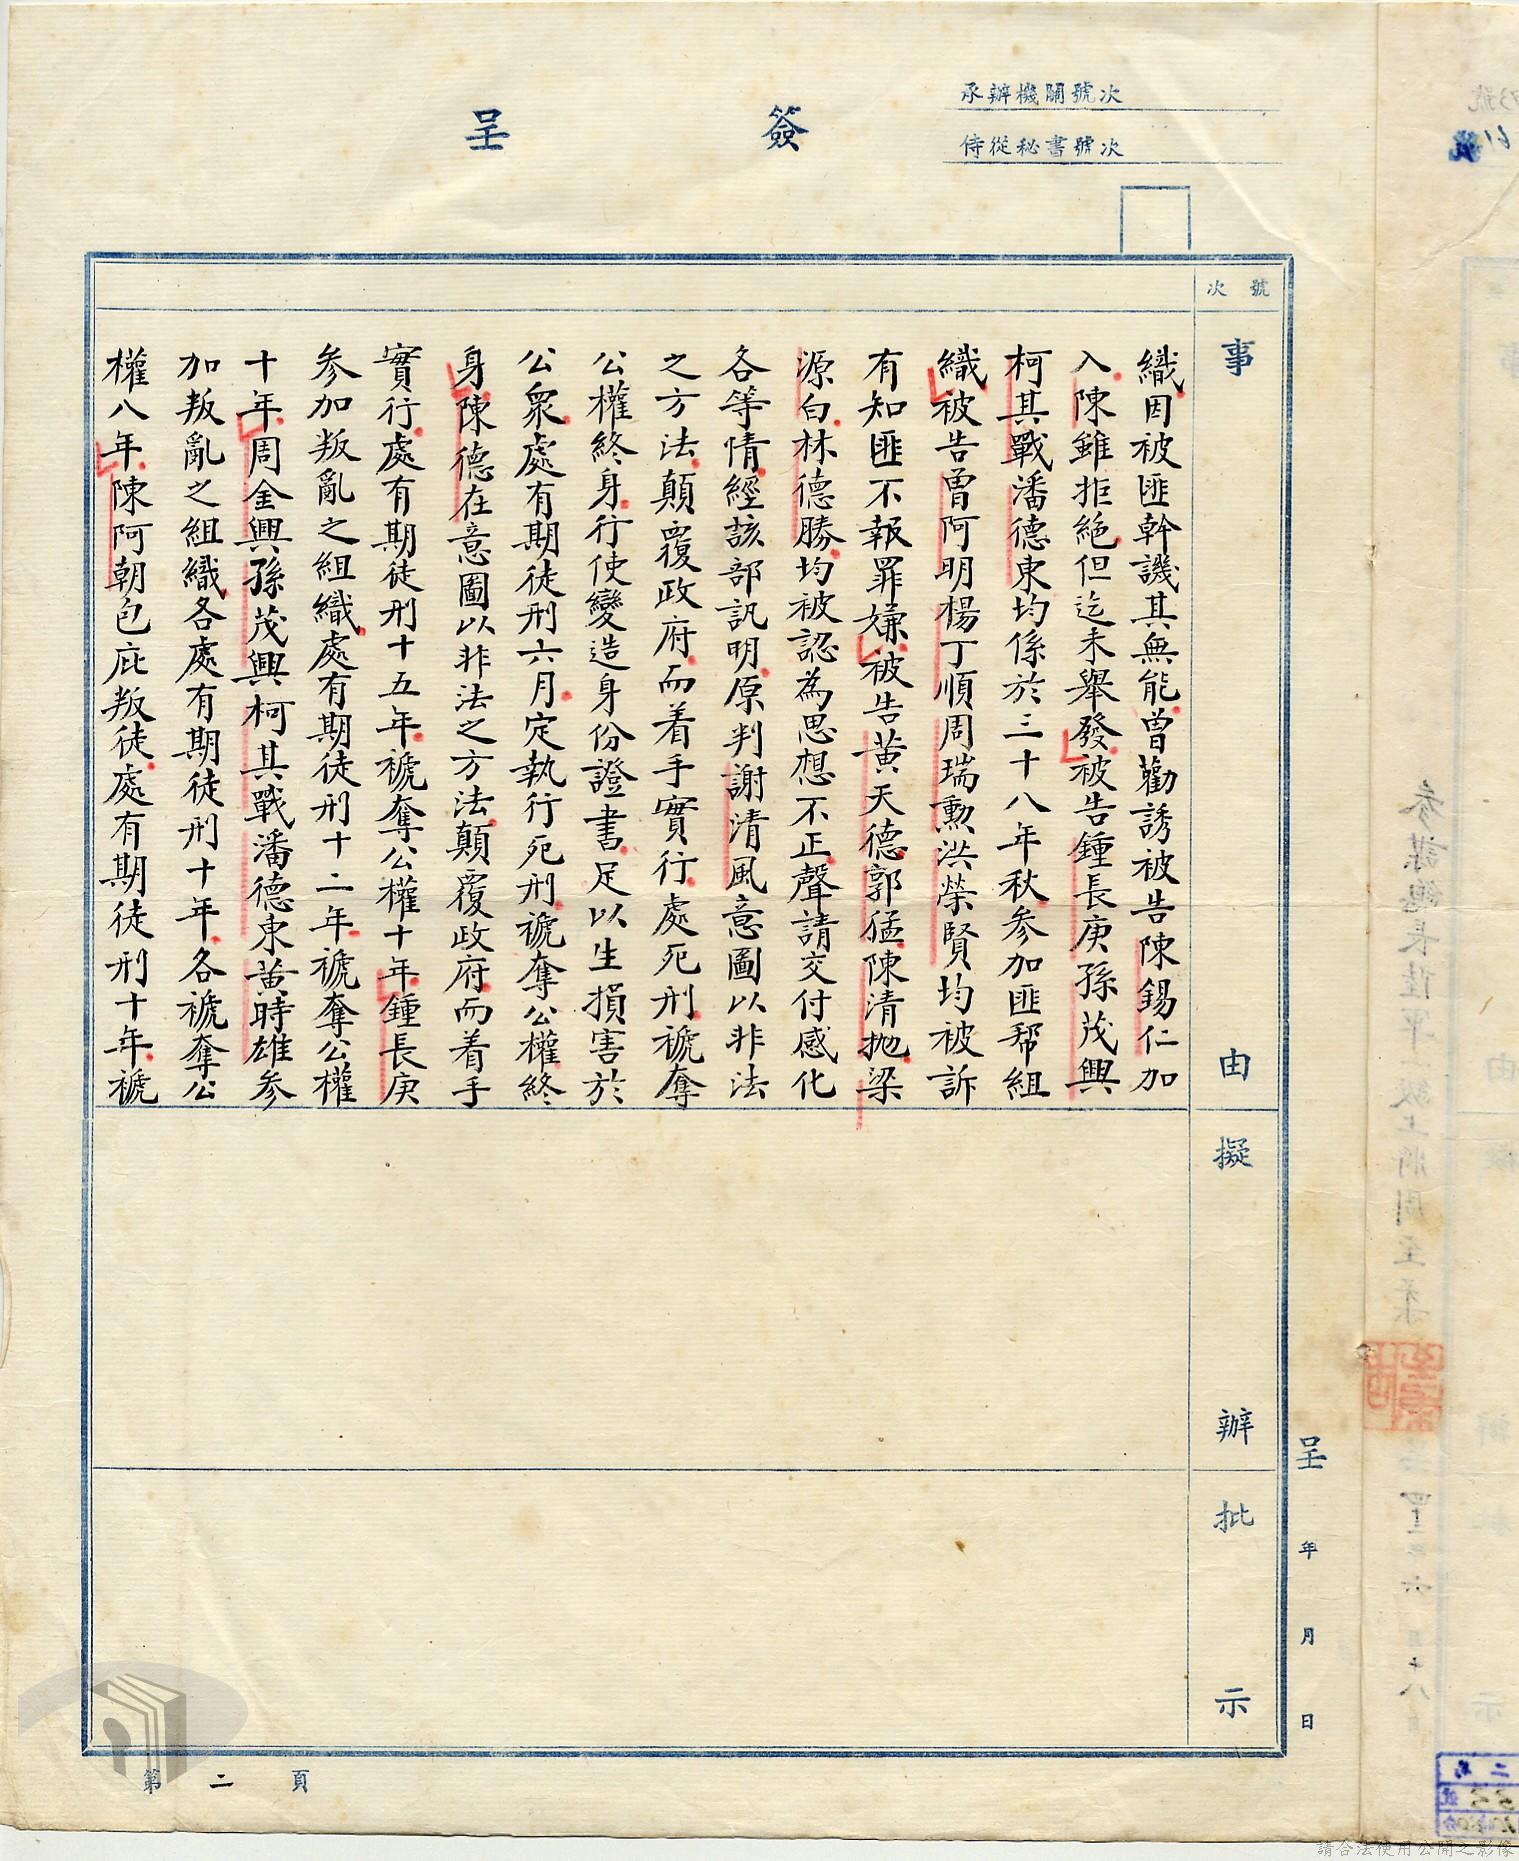 承辦機關號次
侍從秘書號次
簽呈
號次
事由
擬辦
批示
織因被匪幹譏其無能曾勸誘被告陳錫仁加
入陳雖拒絕但迄未舉發被告鍾長庚孫茂興
柯其戰潘德東均係於三十八年秋參加匪幫組
織被告曾阿明楊丁順周瑞勲洪榮賢均被訴
有知匪不報罪嫌被告黃天德郭猛陳清拋梁
源白林德勝均被認為思想不正聲請交付感化
各等情經該部訊明原判謝清風意圖以非法
之方法顛覆政府而着手實行處死刑褫奪
公權終身行使變造身份證書足以生損害於
公眾處有期徒刑六月定執行死刑褫奪公權終
身陳德在意圖以非法之方法顛覆政府而着手
實行處有期徒刑十五年褫奪公權十年鍾長庚
參加叛亂之組織處有期徒刑十二年褫奪公權
十年周金興孫茂興柯其戰潘德東黃時雄參
加叛亂之組織各處有期徒刑十年各褫奪公
權八年陳阿朝包庇叛徒處有期徒刑十年褫
呈 年 月 日
第二頁
參謀總長陸軍二級上將周至柔
請合法使用公開之影像